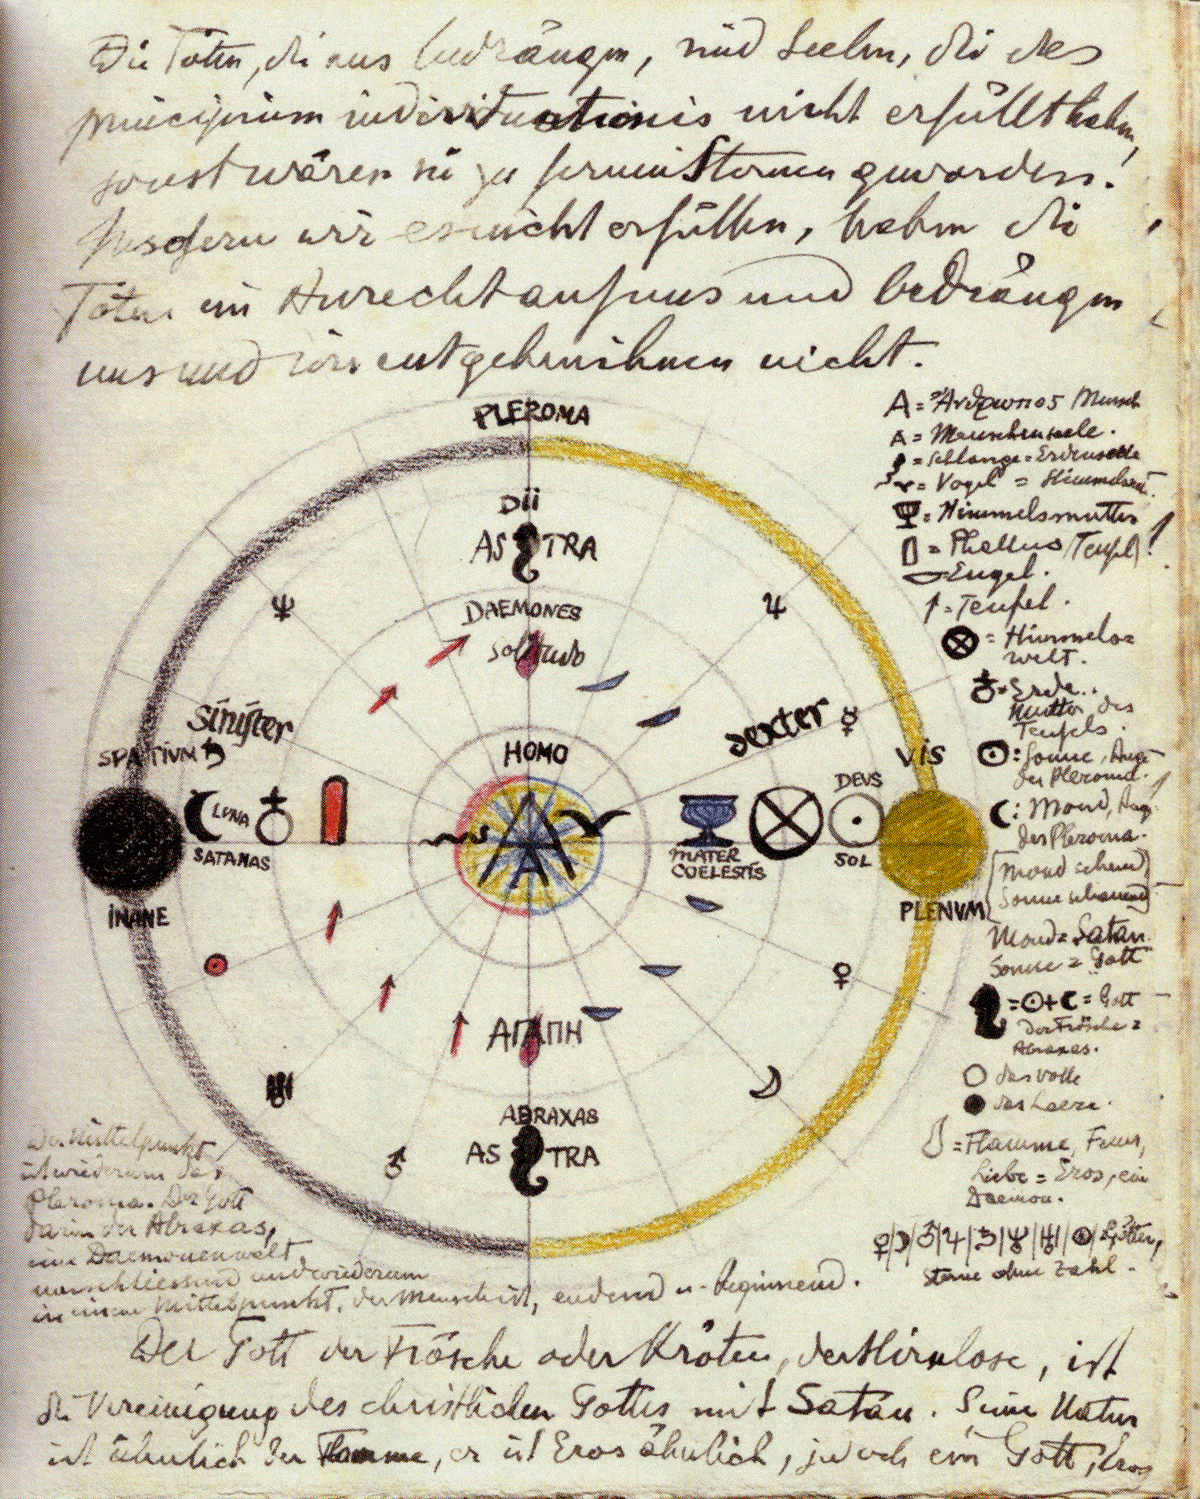 Die Toten, die uns bedrängen, sind Seelen, die das
principium individuationis nicht erfüllt haben,
sonst wären sie zu fernen Sternen geworden.
Insofern wir es nicht erfüllen, haben die
Toten ein Anrecht auf uns und bedrängen
uns und wir entgehen ihnen nicht.
PLEROMA
A = Ἄνθρωπος Mensch
A = Menschenseele.
= Schlange = Erdenseele
= Vogel = Himmelssee.
= Himmelsmutter
= Phallus (Teufel)
= Engel.
= Teufel.
= Himmels=
welt.
= Erde.
Mutter des
Teufels.
☉: Sonne, Auge
des Pleroma.
☾: Mond, Aug.
des Pleroma.
[Mond sehend
Sonne schauend]
Mond = Satan
Sonne = Gott
= ☉+☾ = Gott
der Frösche =
Abraxas.
○ das Volle
● das Leere.
= Flamme, Feuer,
Liebe = Eros, ein
Daemon.
♀|☽|♂|♃|♄|♆|♅|☉| Götter,
Sterne ohne Zahl.
DII
ASTRA
DAEMONES
Solitudo
♆
♃
sinister
dexter
☿
SPATIUM ♄
HOMO
VIS
DEUS
LUNA
SATANAS
A
MATER
COELESTIS
SOL
INANE
PLENUM
♀
ΑΓΑΠΗ
♅
☽
ABRAXAS
ASTRA
♂
Der Mittelpunkt
ist wiederum das
Pleroma. Der Gott
darin der Abraxas,
eine Daemonenwelt
umschliessend und wiederum
in einem Mittelpunkt, der Mensch ist, endend u. beginnend.
Der Gott der Frösche oder Kröten, der Hirnlose, ist
die Vereinigung des christlichen Gottes mit Satan. Seine Natur
ist ähnlich der Flamme, er ist Eros ähnlich, jedoch ein Gott, Eros